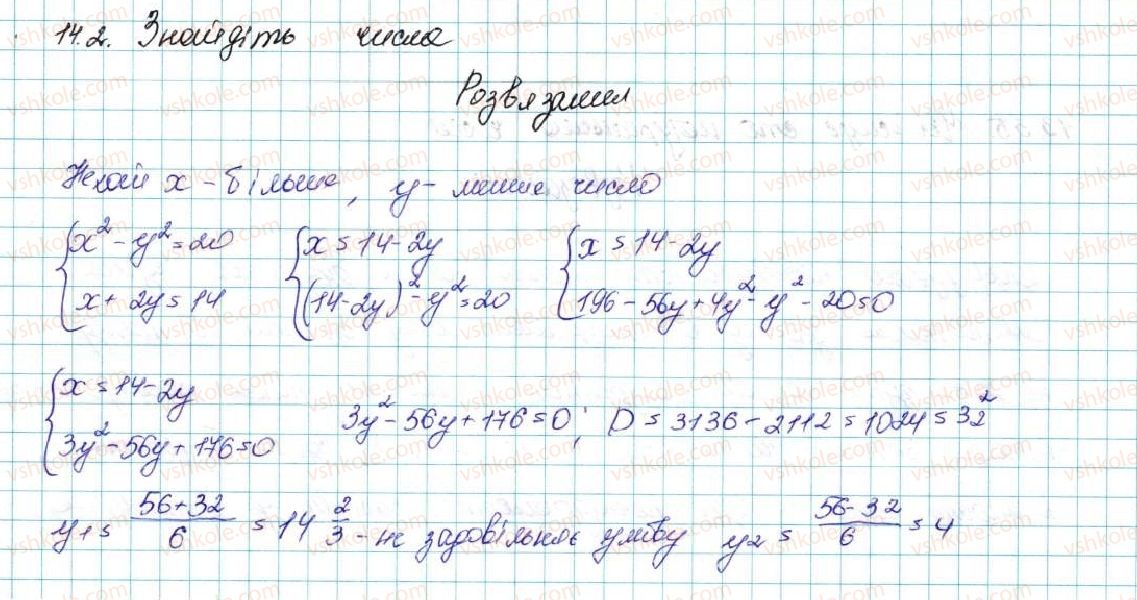 14.2. Знайдіть числа
Розвязання
Нехай x - більше, y - менше число
{x² - y² = 20 {x = 14 - 2y {x = 14 - 2y
{x + 2y = 14 {(14 - 2y)² - y² = 20 {196 - 56y + 4y² - y² - 20 = 0
{x = 14 - 2y
{3y² - 56y + 176 = 0 3y² - 56y + 176 = 0; D = 3136 - 2112 = 1024 = 32²
y₁ = (56 + 32)/6 = 14 2/3 - не задовільняє умову y₂ = (56 - 32)/6 = 4